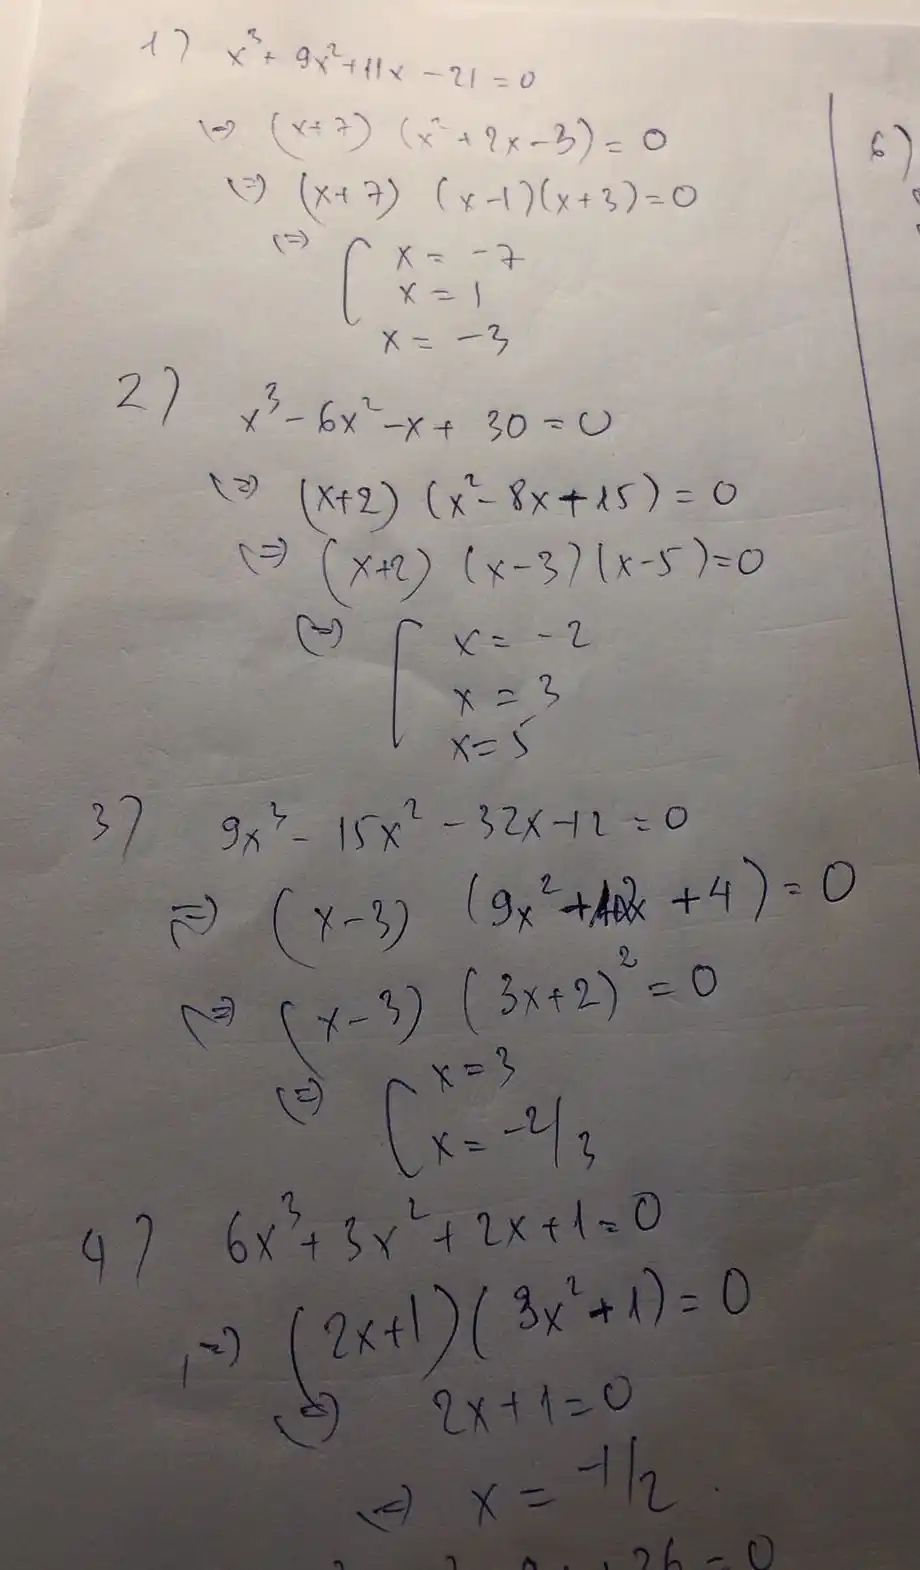 1) x³ + 9x² + 11x - 21 = 0
⇔ (x+7) (x² + 2x - 3) = 0
⇔ (x+7) (x-1)(x+3) = 0
⇔ [ x = -7
x = 1
x = -3
2) x³ - 6x² - x + 30 = 0
⇔ (x+2) (x² - 8x + 15) = 0
⇔ (x+2) (x-3)(x-5) = 0
⇔ [ x = -2
x = 3
x = 5
3) 9x³ - 15x² - 32x - 12 = 0
⇔ (x-3) (9x² + 12x + 4) = 0
⇔ (x-3) (3x+2)² = 0
⇔ [ x = 3
x = -2/3
4) 6x³ + 3x² + 2x + 1 = 0
⇔ (2x+1)(3x² + 1) = 0
⇔ 2x + 1 = 0
⇔ x = -1/2.
+ 26 = 0
6)